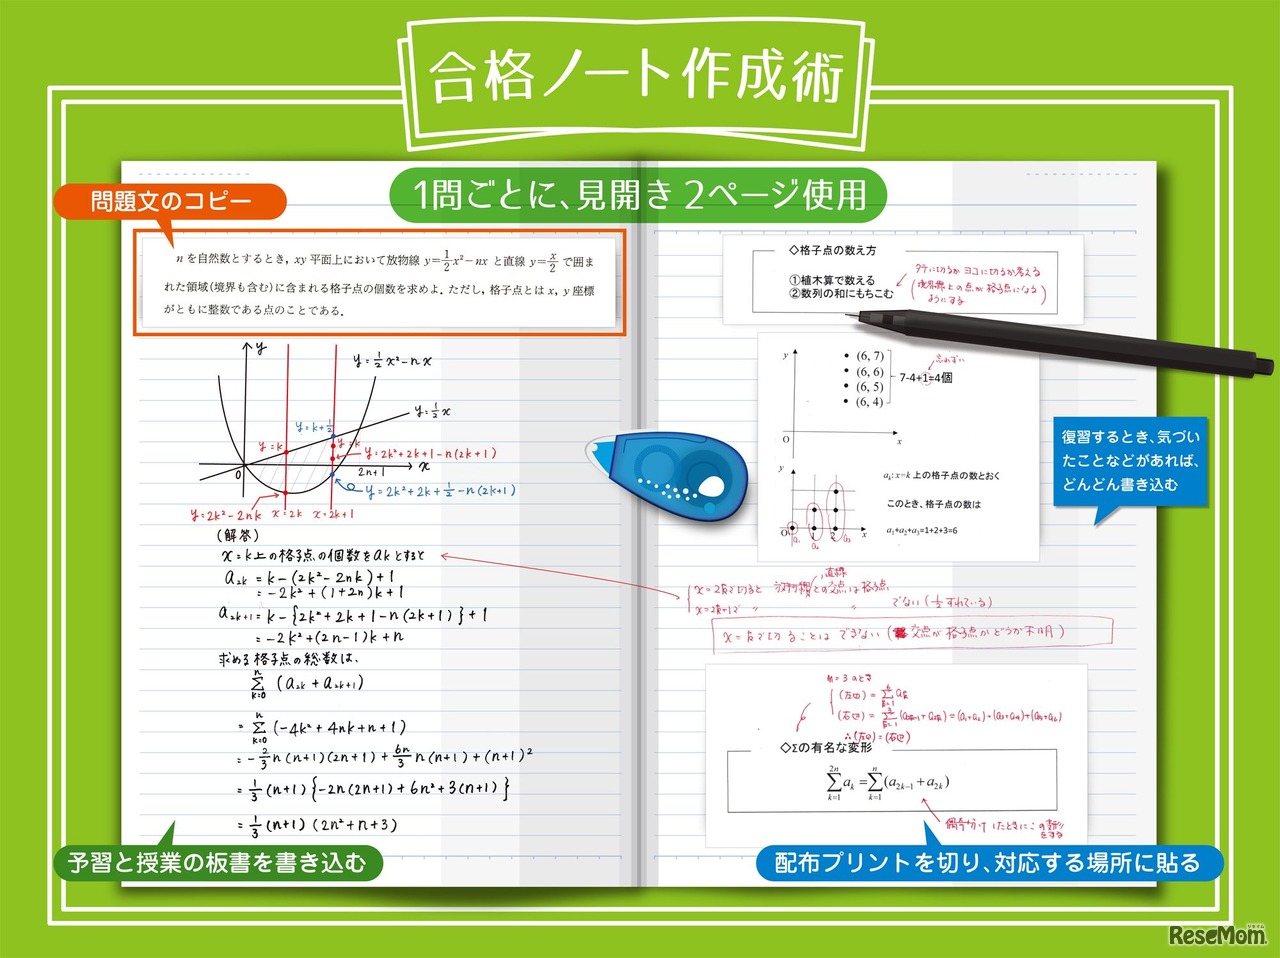 合格ノート作成術
1問ごとに、見開き 2ページ使用
問題文のコピー
nを自然数とするとき，xy平面上において放物線 y=1/2x²−nx と直線 y=x/2 で囲ま
れた領域(境界も含む)に含まれる格子点の個数を求めよ．ただし，格子点とは x，y座標
がともに整数である点のことである．
y
y=1/2x²-nx
y=1/2x
y=k+1/2
y=k
y=k
y=2k²+2k+1-n(2k+1)
0
2n+1
x
y=2k²+2k+1/2-n(2k+1)
y=2k²-2nk
x=2k
x=2k+1
(解答)
x=k上の格子点の個数をakとすると
a2k = k-(2k²-2nk)+1
= -2k²+(1+2n)k+1
a2k+1 = k-{2k²+2k+1-n(2k+1)}+1
= -2k²+(2n-1)k+n
求める格子点の総数は、
n Σ k=0 (a2k+a2k+1)
= n Σ k=0 (-4k²+4nk+n+1)
= -2/3n(n+1)(2n+1)+6n/3n(n+1)+(n+1)²
= 1/3(n+1){-2n(2n+1)+6n²+3(n+1)}
= 1/3(n+1)(2n²+n+3)
予習と授業の板書を書き込む
◇格子点の数え方
①植木算で数える
②数列の和にもちこむ
タテに切るかヨコに切るか考える
(境界線上の点が格子点になる
ようにする)
y
(6, 7)
(6, 6)
(6, 5)
(6, 4)
忘れずに
7-4+1=4個
O
x
復習するとき、気づい
たことなどがあれば、
どんどん書き込む
y
ak: x=k 上の格子点の数とおく
このとき、格子点の数は
a1+a2+a3=1+2+3=6
O
1
2
x
a1
a2
a3
直線
x=2kで切ると 放物線との交点は格子点
x=2k+1で 〃 〃 でない(1/2ずれている)
x=kで切ることはできない(交点が格子点かどうか不明)
n=3 のとき
(左辺) = 6 Σ k=1 ak
(右辺) = 3 Σ k=1 (a2k-1+a2k) = (a1+a2)+(a3+a4)+(a5+a6)
∴(左辺)=(右辺)
◇Σの有名な変形
2n Σ k=1 ak = n Σ k=1 (a2k−1+a2k)
偶奇分けしたときにこの変形
をする
配布プリントを切り、対応する場所に貼る
リセマム
ReseMom.